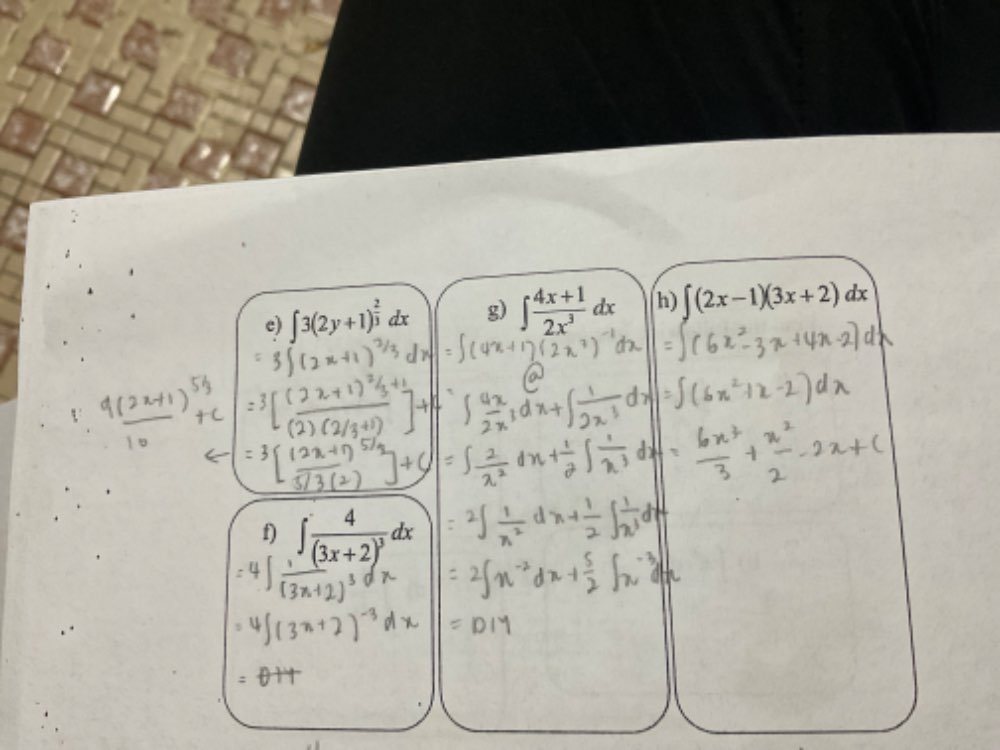 e) ∫3(2y+1)^(2/3) dx
= 3∫(2x+1)^(2/3) dx
= 3[(2x+1)^(2/3+1) / (2)(2/3+1)] + C
← = 3[(2x+1)^(5/3) / 5/3(2)] + C
9(2x+1)^(5/3) / 10 + C
f) ∫ 4/(3x+2)^3 dx
= 4∫ 1/(3x+2)^3 dx
= 4∫(3x+2)^-3 dx
=
g) ∫ (4x+1)/(2x^3) dx
= ∫(4x+1)(2x^3)^-1 dx
@
∫ 4x/2x^3 dx + ∫ 1/2x^3 dx
= ∫ 2/x^2 dx + 1/2 ∫ 1/x^3 dx
= 2∫ 1/x^2 dx + 1/2 ∫ 1/x^3 dx
= 2∫x^-2 dx + 5/2 ∫x^-3 dx
= DIY
h) ∫(2x−1)(3x+2) dx
= ∫(6x^2 - 3x + 4x - 2) dx
= ∫(6x^2 + x - 2) dx
= 6x^3/3 + x^2/2 - 2x + C